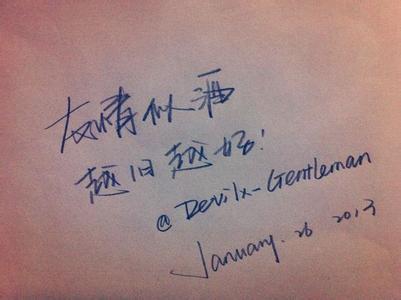 友情似酒
越旧越好!
@Devilx-Gentleman
January. 26 2013